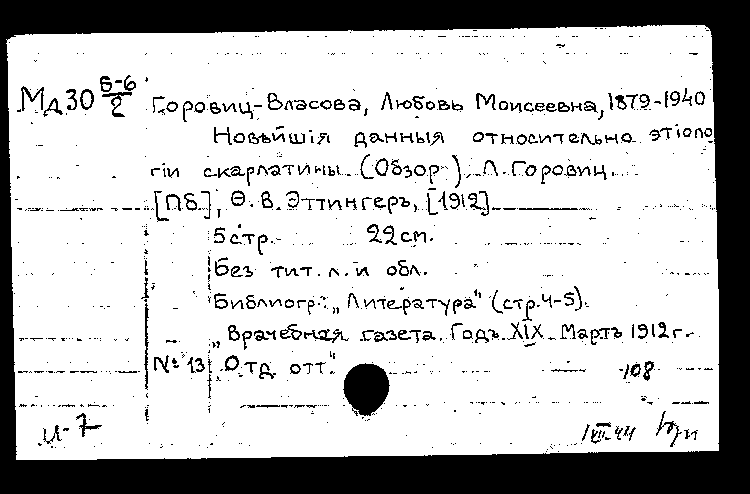 Мд30 6-6/2
Горовиц-Власова, Любовь Моисеевна, 1879-1940
Новѣйшія данныя относительно этіоло
гіи скарлатины (Обзор). Л. Горовиц.
[Пб.], Ѳ. В. Эттингеръ, [1912]
5 стр. 22 см.
Без тит. л. и обл.
Библиогр: „Литература" (стр. 4-5).
„Врачебная газета. Годъ XIX. Мартъ 1912 г.
№ 13 Отд отт."
108
и-7
1 VII 44